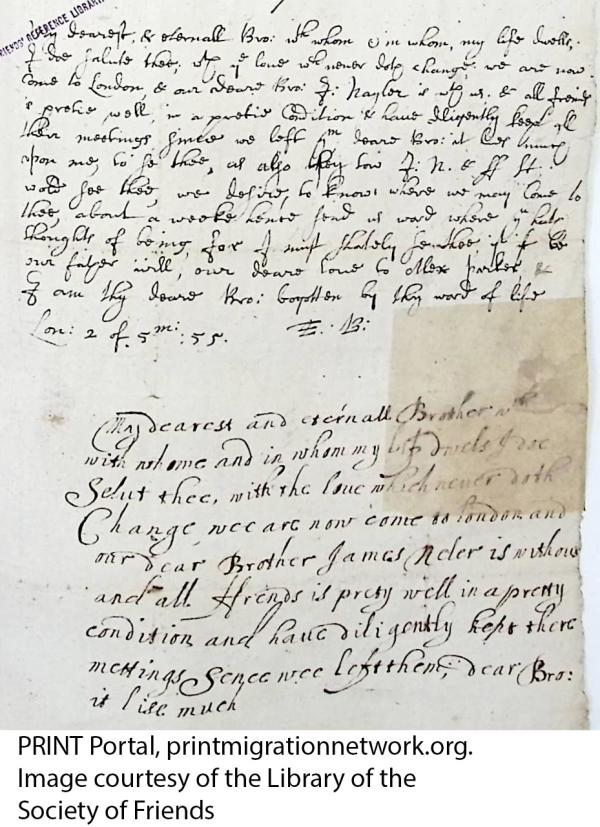 FRIENDS' REFERENCE LIBRARY
My dearest, & eternall Bro: wth whom & in whom, my life dwells,
I doe salute thee, wth ye love wch never doth change: we are now
Come to London, & our deare Bro: J: Naylor is wth us, & all frends
is pretie well, in a pretie Condition & have diligently keept all
their meetings since we left ym deare Bro: it lyes
upon mee to se thee, as also they two J. N. & ff H.
wold see thee, we desire, to know where we may Come to
thee, about a weeke hence send us word where yu hath
thoughts of being, for I must shortely see thee yt if be
our father will, our deare love to Alex parker, &
I am thy deare Bro: begotten by thy word of life
Lon: 2 of 5 m: 55. E: B:
My dearest and eternall Brother
with whome and in whom my life dwels I doe
Selut thee, with the loue which neuer doth
Change wee are now come to london and
our dear Brother James Neler is withous
and all ffrends is prety well in a pretty
condition and haue diligently kept there
mettings Sence wee left them, Dear Bro:
it lise much
PRINT Portal, printmigrationnetwork.org.
Image courtesy of the Library of the
Society of Friends